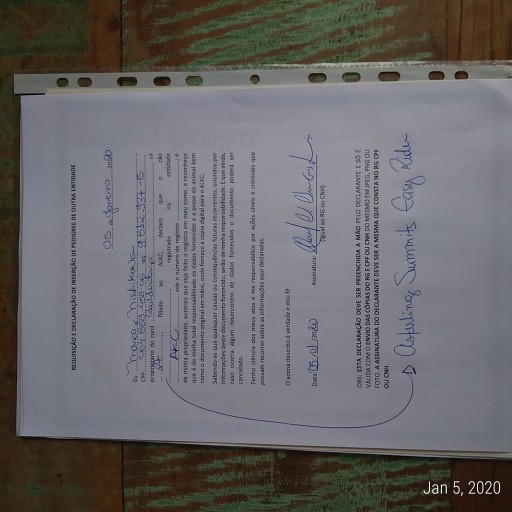 REQUISIÇÃO E DECLARAÇÃO DE INSERÇÃO DE PEDIGREE DE OUTRA ENTIDADE
05 de Janeiro 2020
Eu
CPF RG
proprietário do canil nº
filiado ao AUKC, declaro que o cão
registrado na entidade
AKC sob o número de registro é
de minha propriedade, autorizo que seja feito o registro em meu nome, e reconheço
que é de minha total responsabilidade os dados fornecidos e a posse do animal bem
como o documento original em mãos, onde forneço a cópia digital para o AUKC.
Sabendo-se que quaisquer causas ou consequências futuras recorrentes, oriundos por
informações deste documento fornecido, serão de minha responsabilidade. E que ainda,
caso ocorra algum desencontro de dados fornecidos o documento poderá ser
cancelado.
Tenho ciência dos meus atos e me responsabilizo por ações cíveis e criminais que
possam recorrer sobre as informações aqui declaradas.
O acima descrito é verdade e dou fé
Data: 05.01.2020 Assinatura:
(Igual ao RG ou CNH)
OBS: ESTA DECLARAÇÃO DEVE SER PREENCHIDA A MÃO PELO DECLARANTE E SÓ É
VÁLIDA COM O ENVIO DAS CÓPIAS DO RG E CPF OU CNH DO MESMO EM JPEG, PNG OU
FOTO. A ASSINATURA DO DECLARANTE DEVE SER A MESMA QUE CONSTA NO RG CPF
OU CNH.
Summits Easy Rider
Jan 5, 2020